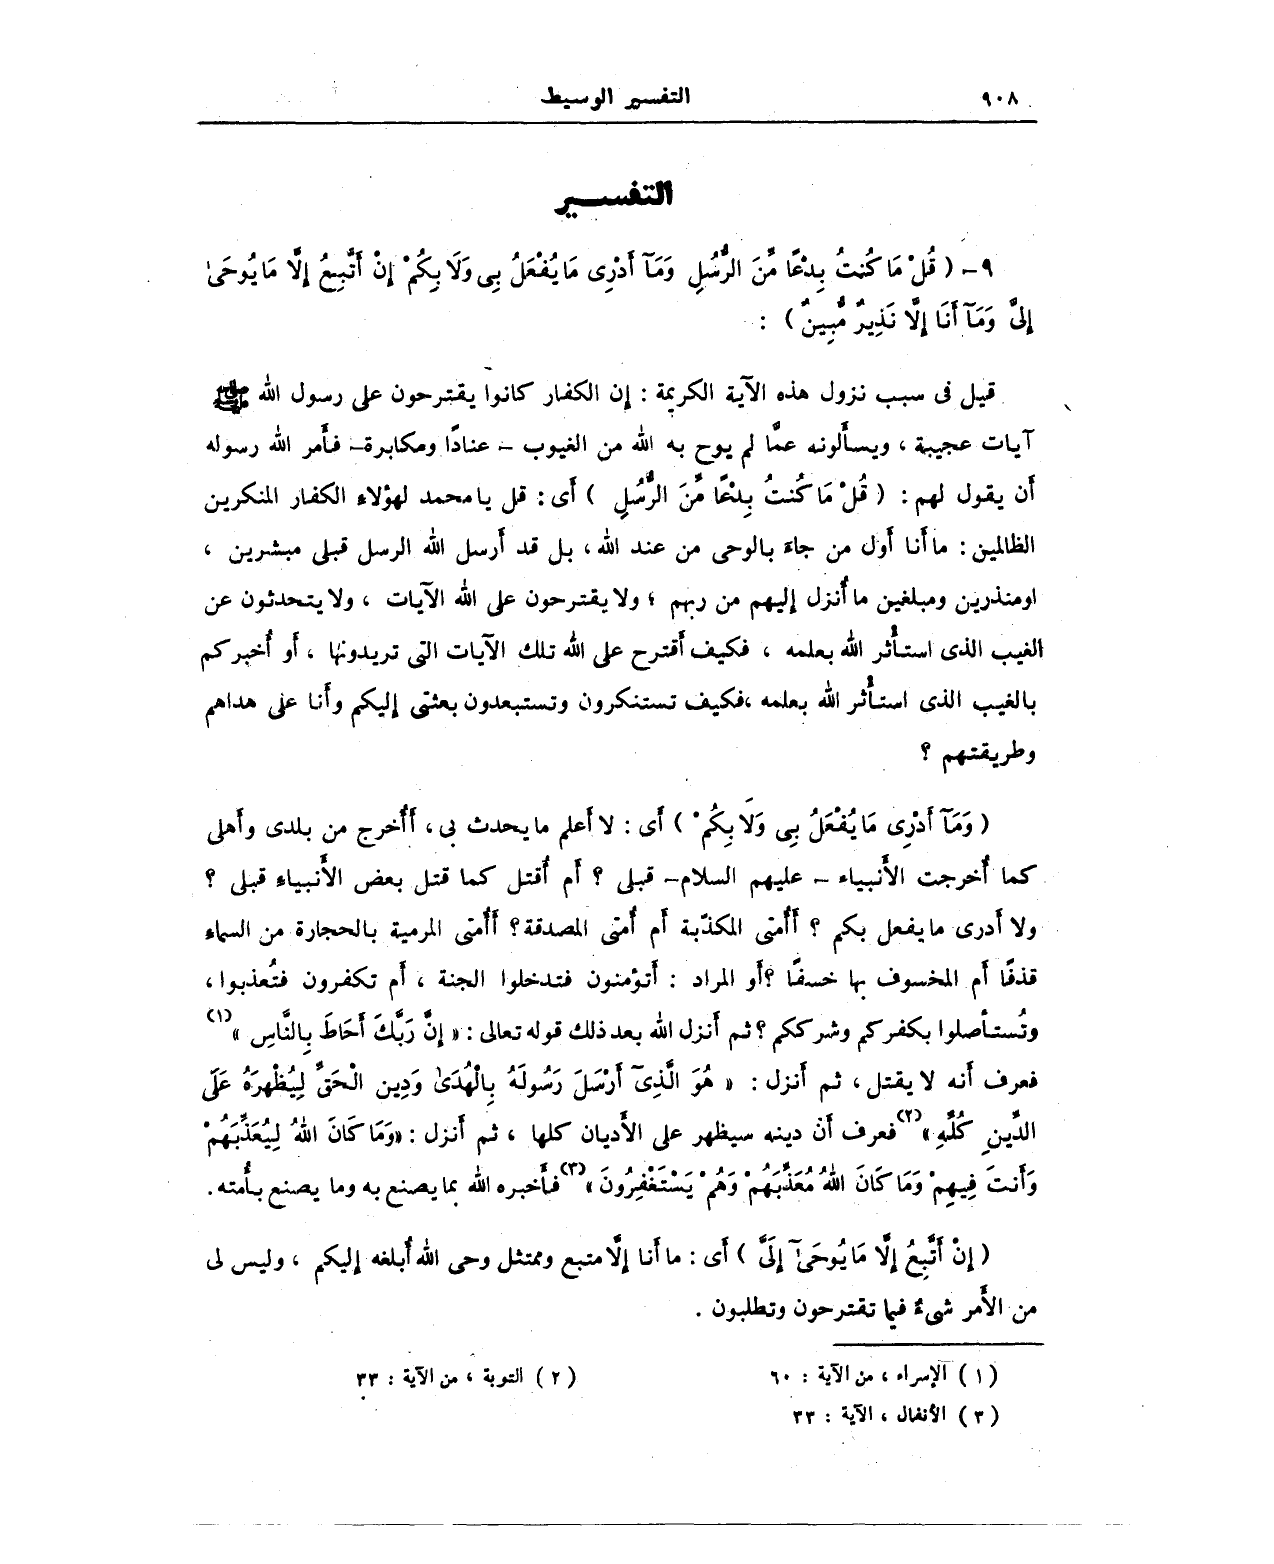 ٩٠٨
التفسير الوسيط
التفسـير
٩- ( قُلْ مَا كُنتُ بِدْعًا مِّنَ الرُّسُلِ وَمَآ أَدْرِى مَا يُفْعَلُ بِى وَلَا بِكُمْ إِنْ أَتَّبِعُ إِلَّا مَا يُوحَىٰ
إِلَىَّ وَمَآ أَنَا إِلَّا نَذِيرٌ مُّبِينٌ ) :
قيل فى سبب نزول هذه الآية الكريمة : إن الكفار كانوا يقترحون على رسول الله ﷺ
آيات عجيبة ، ويسأَلونه عمَّا لم يوح به الله من الغيوب – عنادًا ومكابرة– فأَمر الله رسوله
أَن يقول لهم : ( قُلْ مَا كُنتُ بِدْعًا مِّنَ الرُّسُلِ ) أَى : قل يا محمد لهؤلاء الكفار المنكرين
الظالمين : ما أَنا أَول من جاءَ بالوحى من عند الله ، بل قد أَرسل الله الرسل قبلى مبشرين ،
اومنذرين ومبلغين ما أُنزل إليهم من ربهم ؛ ولا يقترحون على الله الآيات ، ولا يتحدثون عن
الغيب الذى استأْثر الله بعلمه ، فكيف أَقترح على الله تلك الآيات التى تريدونها ، أَو أُخبركم
بالغيب الذى استأْثر الله بعلمه ،فكيف تستنكرون وتستبعدون بعثتى إليكم وأَنا على هداهم
وطريقتهم ؟
( وَمَآ أَدْرِى مَا يُفْعَلُ بِى وَلَا بِكُمْ ) أَى : لا أَعلم ما يحدث بى ، أَأُخرج من بلدى وأَهلى
كما أُخرجت الأَنبياء – عليهم السلام– قبلى ؟ أَم أُقتل كما قتل بعض الأَنبياءِ قبلى ؟
ولا أَدرى ما يفعل بكم ؟ أَأُمتى المكذّبة أَم أُمتى المصدقة ؟ أَأُمتى المرمية بالحجارة من السماء
قذفًا أَم المخسوف بها خسفًا ؟أَو المراد : أَتؤمنون فتدخلوا الجنة ، أَم تكفرون فتُعذبوا ،
وتُستأصلوا بكفركم وشرككم ؟ ثم أَنزل الله بعد ذلك قوله تعالى : « إِنَّ رَبَّكَ أَحَاطَ بِالنَّاسِ »(١)
فعرف أَنه لا يقتل ، ثم أَنزل : « هُوَ الَّذِىٓ أَرْسَلَ رَسُولَهُ بِالْهُدَىٰ وَدِينِ الْحَقِّ لِيُظْهِرَهُ عَلَى
الدِّينِ كُلِّهِ »(٢) فعرف أَن دينه سيظهر على الأَديان كلها ، ثم أَنزل : «وَمَا كَانَ اللهُ لِيُعَذِّبَهُمْ
وَأَنتَ فِيهِمْ وَمَا كَانَ اللهُ مُعَذِّبَهُمْ وَهُمْ يَسْتَغْفِرُونَ »(٣) فأَخبره الله بما يصنع به وما يصنع بأُمته .
( إِنْ أَتَّبِعُ إِلَّا مَا يُوحَىٰٓ إِلَىَّ ) أَى : ما أَنا إِلَّا متبع وممتثل وحى الله أُبلغه إليكم ، وليس لى
من الأَمر شىءٌ فيما تقترحون وتطلبون .
( ١ ) الإسراء ، من الآية : ٦٠
( ٢ ) التوبة ، من الآية : ٣٣
( ٣ ) الأنفال ، الآية : ٣٣